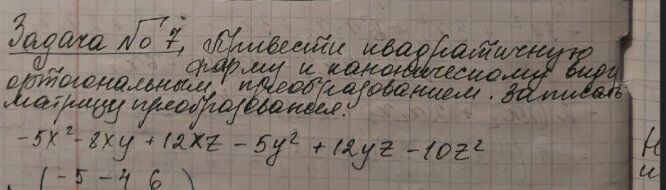 Задача №7. Привести квадратичную
форму к каноническому виду
ортогональным преобразованием. Записать
матрицу преобразования.
-5x² - 8xy + 12xz - 5y² + 12yz - 10z²
(-5 -4 6)
Н
и